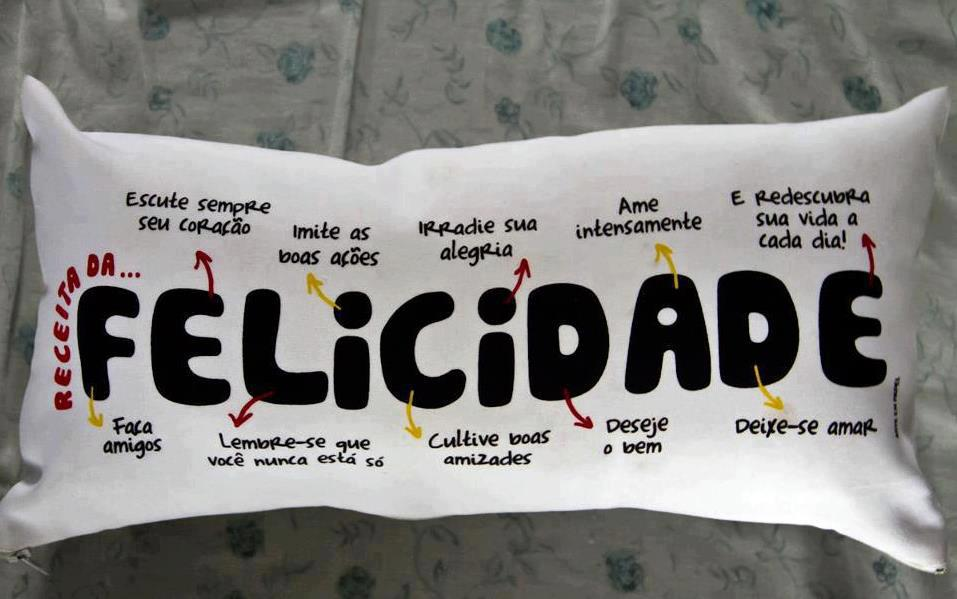 RECEITA DA...
FELICIDADE
Escute sempre
seu coração
Imite as
boas ações
Irradie sua
alegria
Ame
intensamente
E Redescubra
sua vida a
cada dia!
Faça
amigos
Lembre-se que
você nunca está só
Cultive boas
amizades
Deseje
o bem
Deixe-se amar